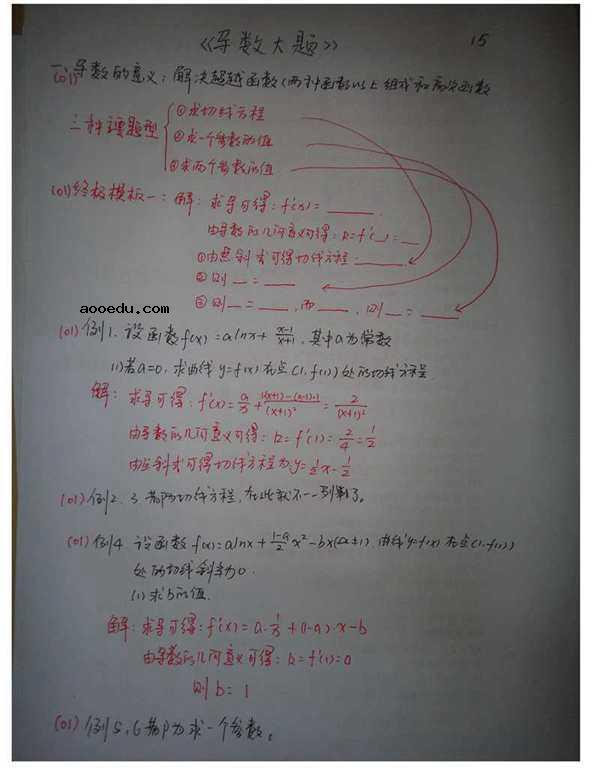 《导数大题》 15
一、导数的意义：解决超越函数(两种函数以上组成和高次函数
(01)
三种课题型
①求切线方程
②求一个参数的值
③求两个参数的值
(01)终极模板一：解：求导可得：f'(x)=____.
由导数的几何意义可得：k=f'(_)=__
①由点斜式可得切线方程：____
②则__=____
③则__=____,而____,则__=____
aooedu.com
(01)例1.设函数f(x)=alnx+\frac{x-1}{x+1},其中a为常数
(1)若a=0,求曲线y=f(x)在点(1,f(1))处的切线方程
解：求导可得：f'(x)=\frac{a}{x}+\frac{1(x+1)-(x-1)·1}{(x+1)^2}=\frac{2}{(x+1)^2}
由导数的几何意义可得：k=f'(1)=\frac{2}{4}=\frac{1}{2}
由点斜式可得切线方程为:y=\frac{1}{2}x-\frac{1}{2}
(01)例2.3都为切线方程,在此就不一一列举了。
(01)例4 设函数f(x)=alnx+\frac{1-a}{2}x^2-bx(a≠1).曲线y=f(x)在点(1,f(1))
处的切线斜率为0.
(1)求b的值.
解：求导可得:f'(x)=a·\frac{1}{x}+(1-a)·x-b
由导数的几何意义可得：k=f'(1)=0
则b=1
(01)例5,6都为求一个参数。